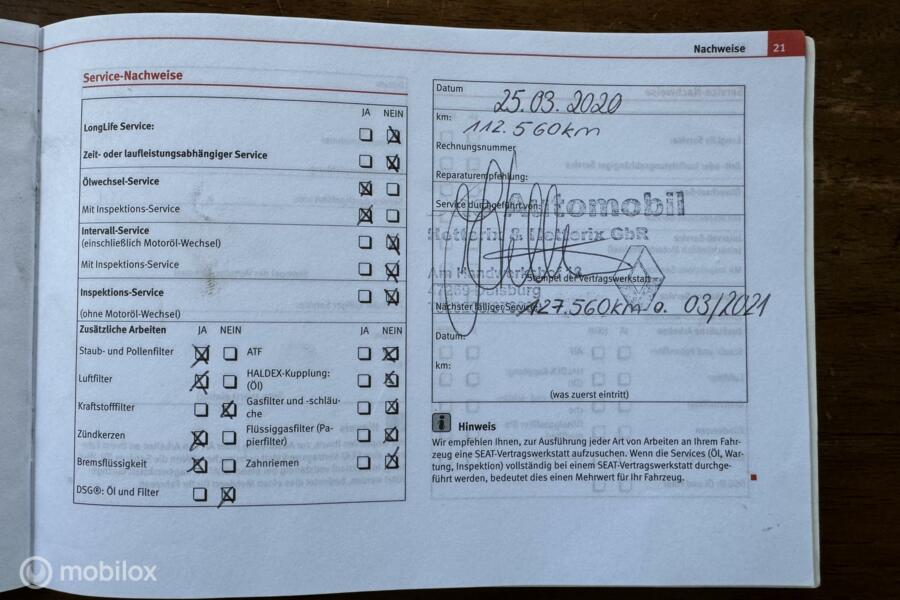 Nachweise 21
Service-Nachweise
JA NEIN
LongLife Service:
Zeit- oder laufleistungsabhängiger Service
Ölwechsel-Service
Mit Inspektions-Service
Intervall-Service
(einschließlich Motoröl-Wechsel)
Mit Inspektions-Service
Inspektions-Service
(ohne Motoröl-Wechsel)
Zusätzliche Arbeiten JA NEIN JA NEIN
Staub- und Pollenfilter ATF
Luftfilter HALDEX-Kupplung:
(Öl)
Kraftstofffilter Gasfilter und -schläu-
che
Zündkerzen Flüssiggasfilter (Pa-
pierfilter)
Bremsflüssigkeit Zahnriemen
DSG®: Öl und Filter
Datum 25.03.2020
km: 112.560km
Rechnungsnummer
Reparaturempfehlung:
Service durchgeführt von:
Automobil
Hetterix & Hetterix GbR
Am Handwerkshof 12
Stempel der Vertragswerkstatt
47269 Duisburg
Nächster fälliger Service: 127.560km o. 03/2021
Datum:
km:
(was zuerst eintritt)
i Hinweis
Wir empfehlen Ihnen, zur Ausführung jeder Art von Arbeiten an Ihrem Fahr-
zeug eine SEAT-Vertragswerkstatt aufzusuchen. Wenn die Services (Öl, War-
tung, Inspektion) vollständig bei einem SEAT-Vertragswerkstatt durchge-
führt werden, bedeutet dies einen Mehrwert für Ihr Fahrzeug.
mobilox